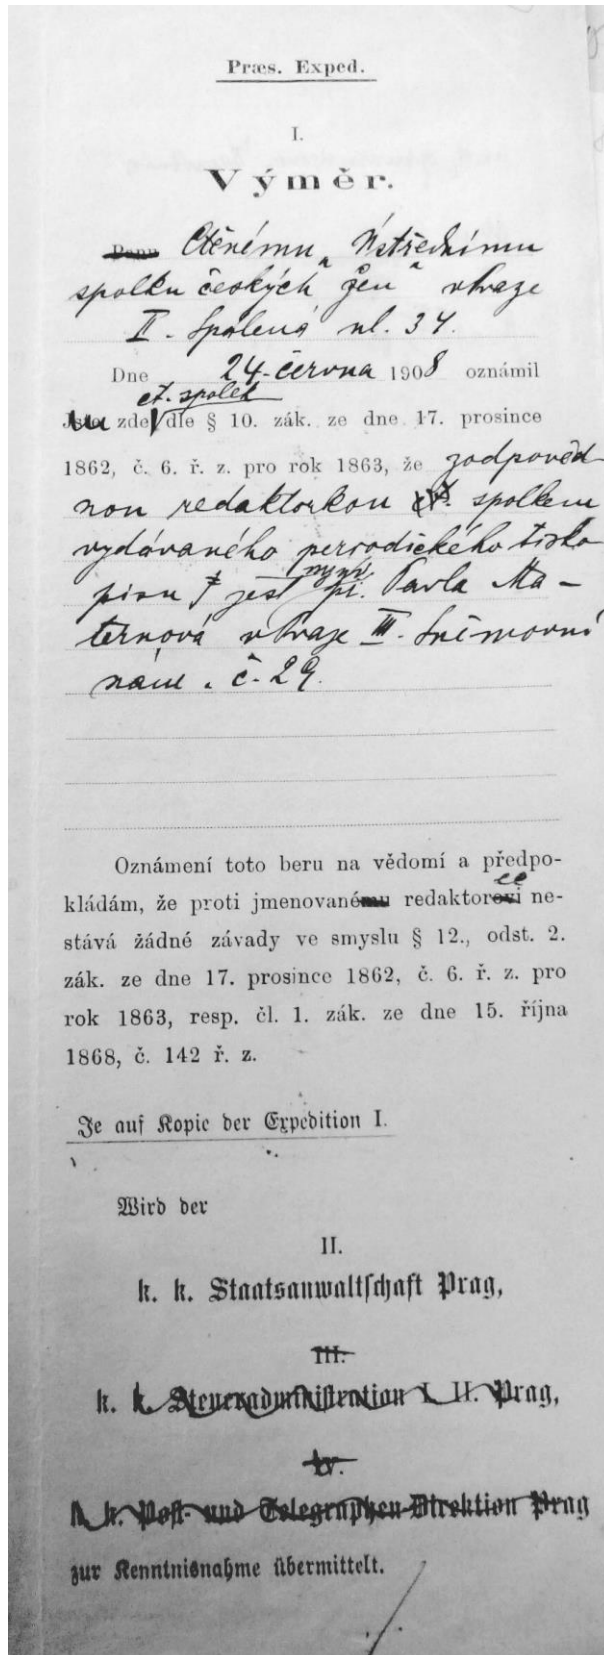 Præs. Exped.
I.
Výměr.
Panu Ctěnému „Ústřednímu
spolku českých žen“ v Praze
II. Spálená ul. 34.
Dne 24. června 1908 oznámil
ct. spolek
Jste zde dle § 10. zák. ze dne 17. prosince
1862, č. 6. ř. z. pro rok 1863, že zodpověd-
nou redaktorkou ct. spolkem
vydávaného periodického tisko
pisu jest pí. Pavla Ma-
ternová v Praze III. Sněmovní
nám. č. 29.
Oznámení toto beru na vědomí a předpo-
kládám, že proti jmenovanému redaktorovi ce ne-
stává žádné závady ve smyslu § 12., odst. 2.
zák. ze dne 17. prosince 1862, č. 6. ř. z. pro
rok 1863, resp. čl. 1. zák. ze dne 15. října
1868, č. 142 ř. z.
Je auf Kopie der Expedition I.
Wird der
II.
k. k. Staatsanwaltschaft Prag,
III.
k. k. Steueradministration I. II. Prag,
IV.
k. k. Post- und Telegraphen-Direktion Prag
zur Kenntnisnahme übermittelt.